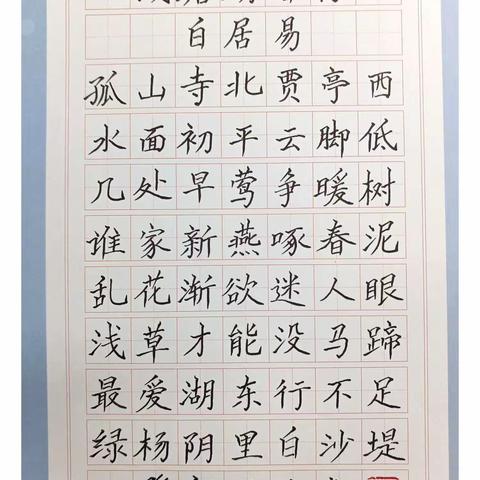 白居易
孤山寺北贾亭西
水面初平云脚低
几处早莺争暖树
谁家新燕啄春泥
乱花渐欲迷人眼
浅草才能没马蹄
最爱湖东行不足
绿杨阴里白沙堤